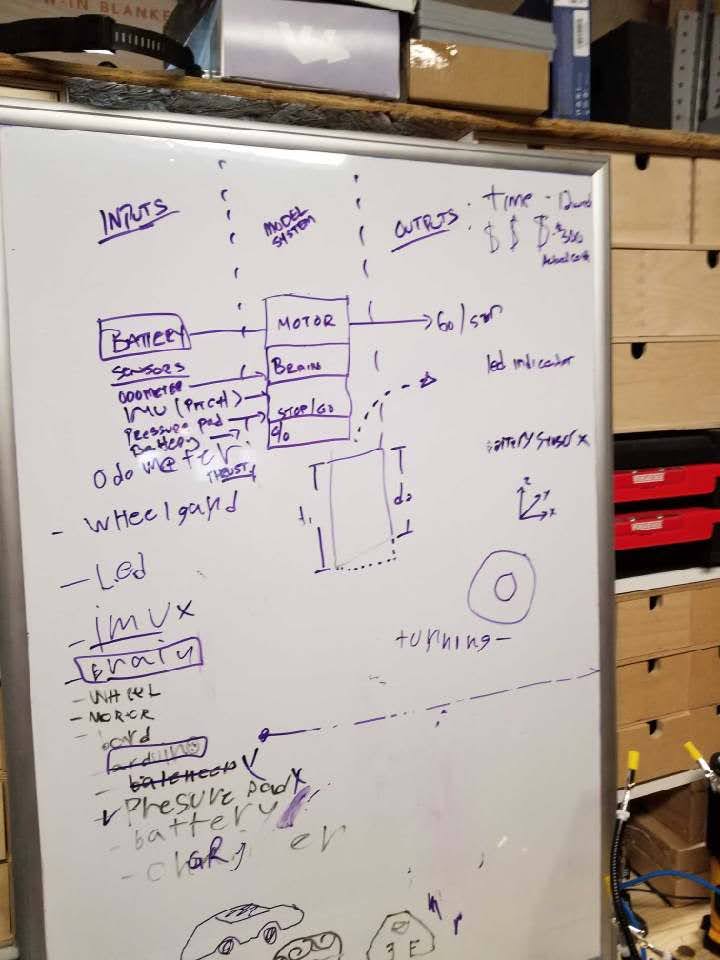 IN BLANKE
INPUTS
MODEL
SYSTEM
OUTPUTS :
TIME -
$ $ $ - $300
Actual cost
BATTERY
MOTOR
Go/STOP
SENSORS
ODOMETER
IMU (PITCH)
Pressure pad
Battery
BRAIN
STOP/GO
%
led indicator
Battery sensor x
Odometer
THRUST
- wheelgard
- Led
- imu x
Z
Y
X
turning -
- WHEEL
- MOTOR
- board
arduino
- Presure pad x
- battery
- charger
3 E